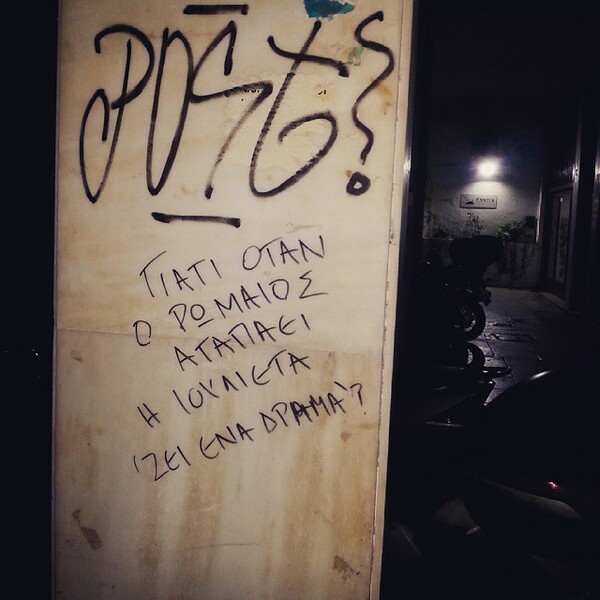 ΓΙΑΤΙ ΟΤΑΝ
Ο ΡΩΜΑΙΟΣ
ΑΓΑΠΑΕΙ
Η ΙΟΥΛΙΕΤΑ
'ΖΕΙ ΕΝΑ ΔΡΑΜΑ'?